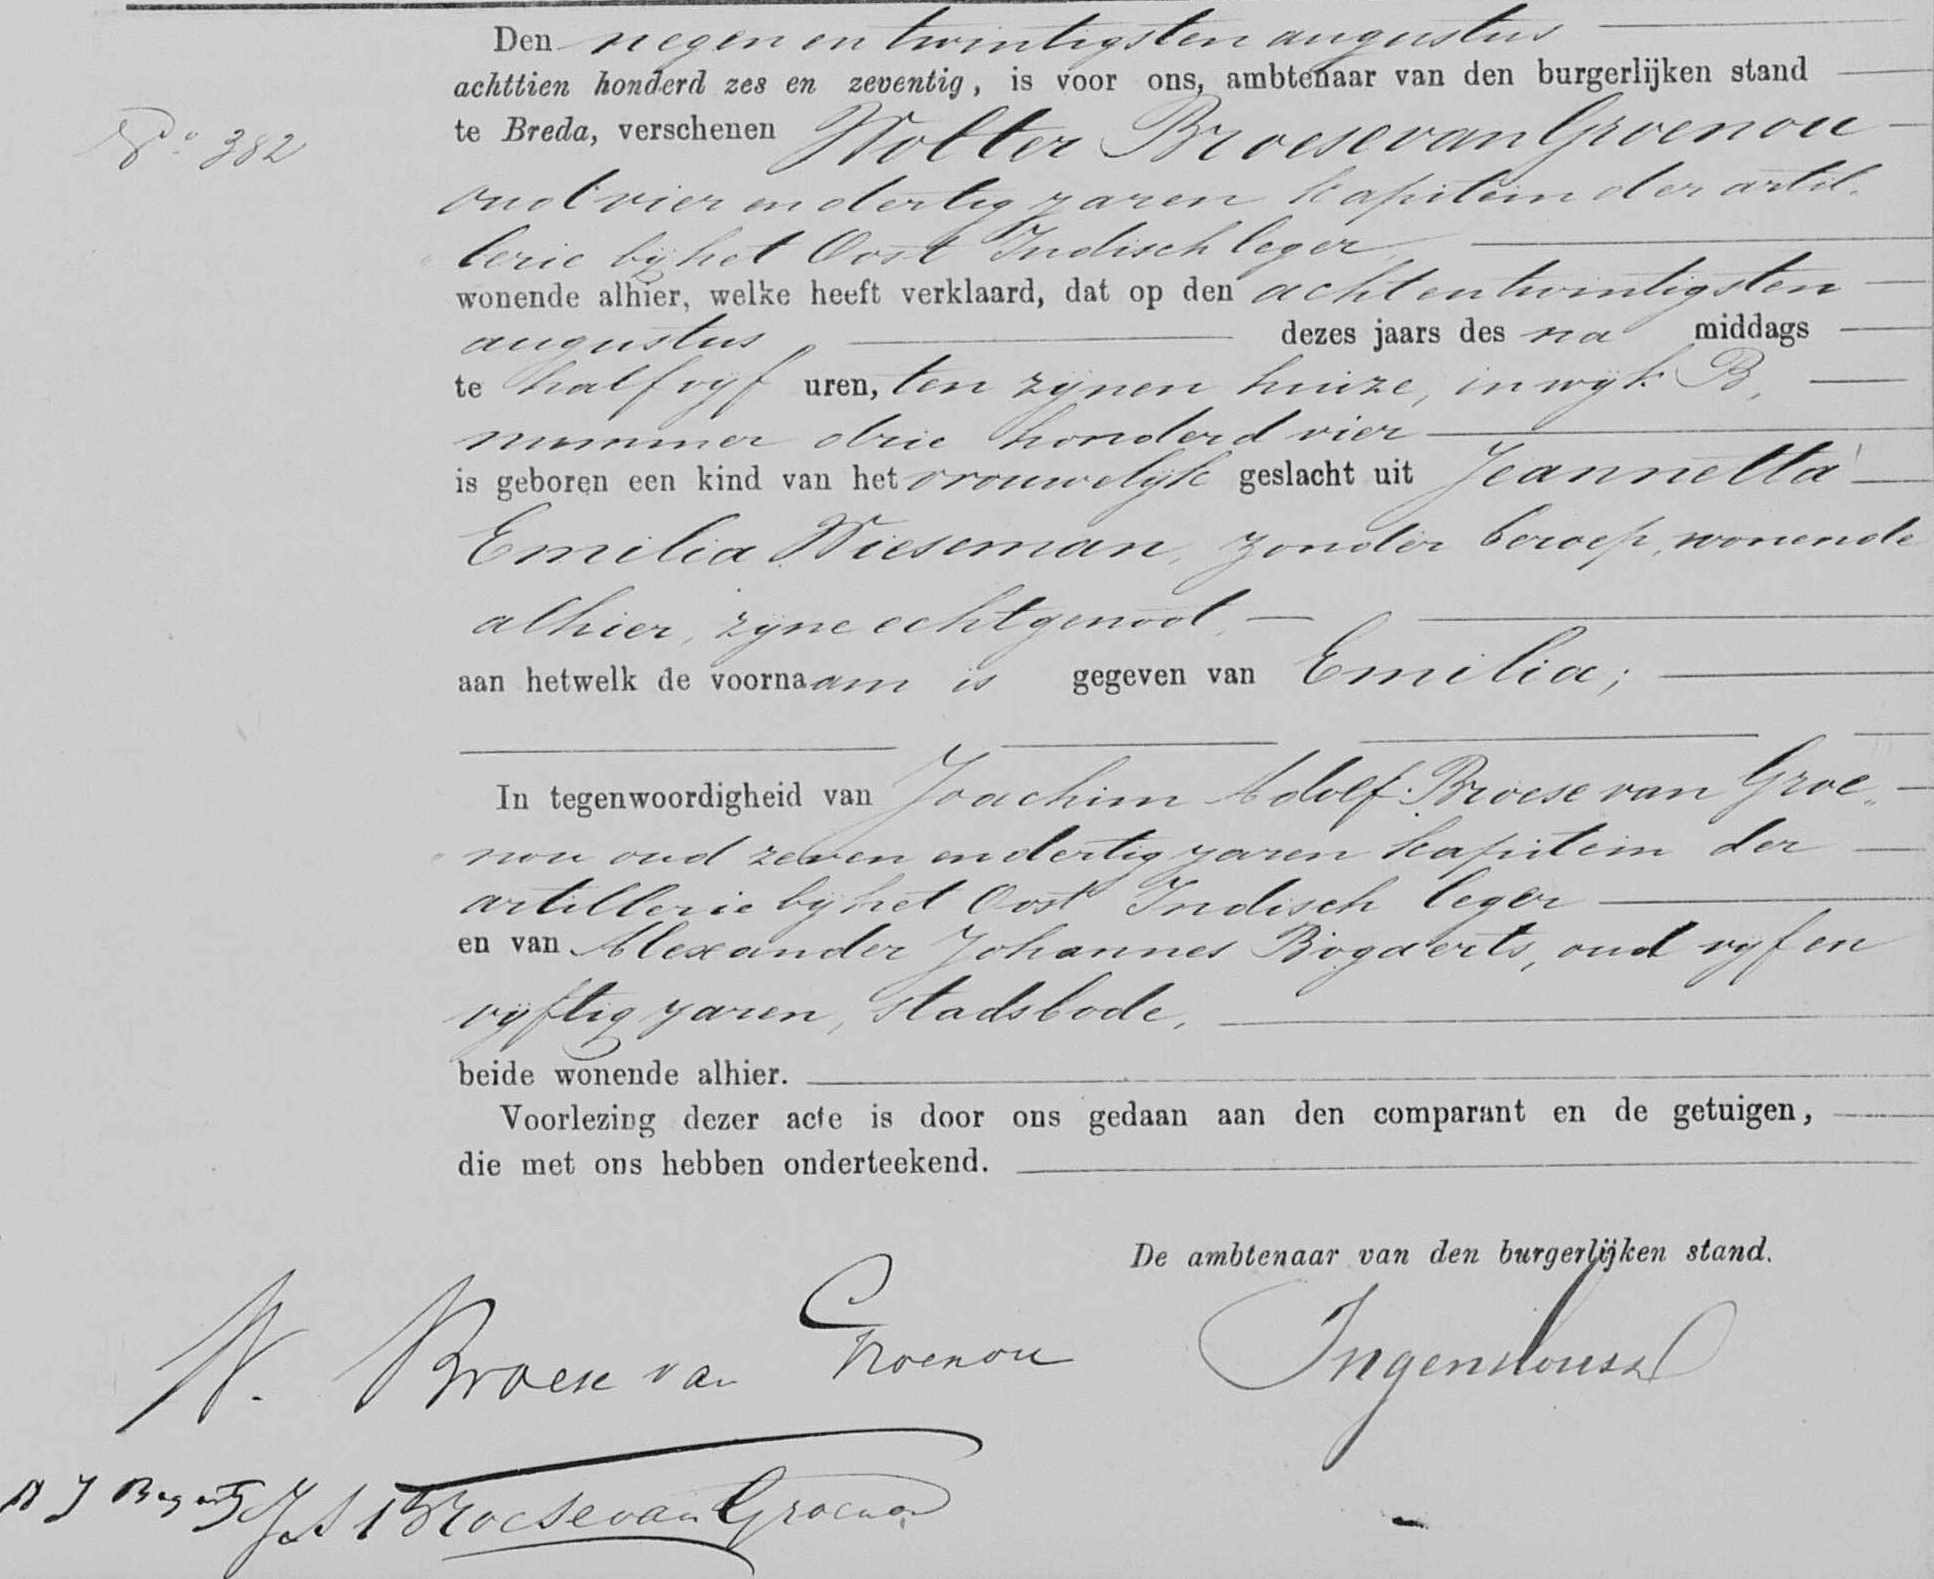 Den negen en twintigsten augustus
achttien honderd zes en zeventig, is voor ons, ambtenaar van den burgerlijken stand
No 382
te Breda, verschenen Wolter Broese van Groenou
oud vier en dertig jaren kapitein der artil-
lerie bij het Oost Indisch leger,
wonende alhier, welke heeft verklaard, dat op den acht en twintigsten
augustus dezes jaars des na middags
te half vijf uren, ten zijnen huize, in wijk B,
nummer drie honderd vier
is geboren een kind van het vrouwelijk geslacht uit Jeannetta
Emilia Wieseman, zonder beroep, wonende
alhier, zijne echtgenoot,
aan hetwelk de voornaam is gegeven van Emilia;
In tegenwoordigheid van Joachim Adolf Broese van Groe„
„nou oud zeven en dertig jaren kapitein der
artillerie bij het Oost Indisch leger
en van Alexander Johannes Bogaerts, oud vijf en
vijftig jaren, stadsbode,
beide wonende alhier.
Voorlezing dezer acte is door ons gedaan aan den comparant en de getuigen,
die met ons hebben onderteekend.
De ambtenaar van den burgerlijken stand.
W. Broese van Groenou
Ingenhousz
A J Bogaerts
J A Broese van Groenou